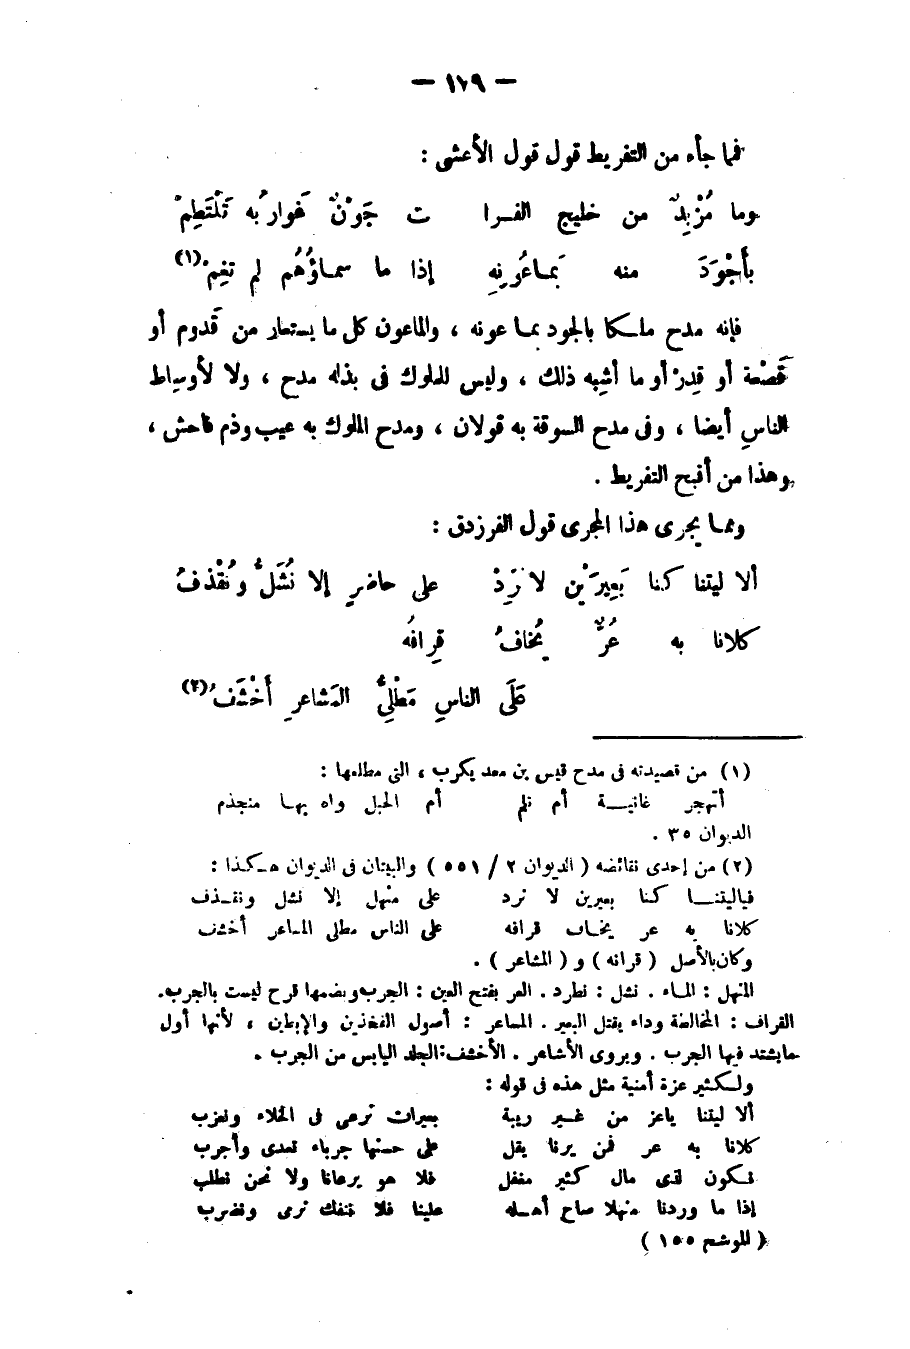 — ١٧٩ —
فمما جاء من التفريط قول قول الأعشى :
وما مُزْبِدٌ من خليج الفـرا ت جَوْنٌ غواربُه تَلْتَطِمْ
بأَجْوَدَ منه بَمـاعُونِهِ إذا ما سمـاؤُهُم لم تغِمْ(١)
فإنه مدح ملـكا بالجود بمـا عونه ، والماعون كل ما يستعار من قَدوم أو
قَصْعة أو قِدرْ أو ما أشبه ذلك ، وليس للملوك فى بذله مدح ، ولا لأوساط
الناسِ أيضا ، وفى مدح السوقة به قولان ، ومدح الملوك به عيب وذم فاحش ،
وهذا من أقبح التفريط .
وممـا يجرى هذا المجرى قول الفرزدق :
ألا ليتنا كنا بَعِيرَيْن لا نَرِدْ على حاضرٍ إلا نُشَلُّ ونُقْذفُ
كلانا به عُرٌّ يُخافُ قِرافُه
عَلَى الناسِ مَطْلِىُّ المَشاعرِ أَخْشَفُ(٢)
(١) من قصيدته فى مدح قيس بن معد يكرب ، التى مطلعها :
أتهجر غانيــة أم تلم أم الحبل واه بهـا منجذم
الديوان ٣٥ .
(٢) من إحدى نقائضه ( الديوان ٢ / ٥٥١ ) والبيتان فى الديوان هـكـذا :
فياليتنــا كنا بعيرين لا نرد على منهل إلا نشل ونقـذف
كلانا به عر يخـاف قرافه على الناس مطلى المـاعر أخشف
وكان بالأصل ( قرانه ) و ( المشاعر ) .
المنهل : المـاء . نشل : نطرد . العر بفتح العين : الجرب وبضمها قرح ليست بالجرب.
القراف : المخالطة وداء يقتل البعير . المساعر : أصول الفخذين والإبطين ، لأنها أول
مايشتد فيها الجرب . ويروى الأشاعر . الأخشف: الجلد اليابس من الجرب .
ولـكثير عزة أمنية مثل هذه فى قوله :
ألا ليتنا ياعز من غـير ريبة بعيرات نرعى فى الخلاء ونعزب
كلانا به عر فمن يرنا يقل على حسنها جرباء تعدى وأجرب
نـكون لذى مال كثير مغفل فلا هو يرعانا ولا نحن نطلب
إذا ما وردنا منهلا صاح أهـله علينا فلا ننفك نرمى ونضرب
( الموشح ١٥٥ )